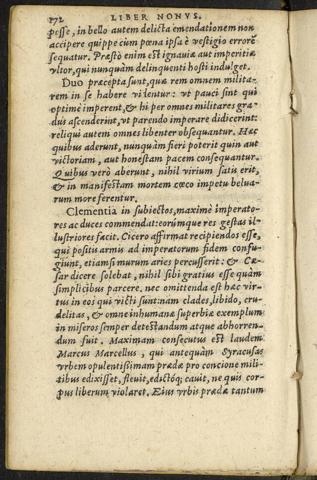 172 LIBER NONVS.
pesse, in bello autem delicta emendationem non
accipere quippe cùm pœna ipsa è vestigio errorẽ
sequatur. Præstò enim est ignauiæ aut imperitiæ
vltor, qui nunquàm delinquenti hosti indulget.
Duo præcepta sunt, quæ rem omnem milita-
rem in se habere videntur: vt pauci sint qui
optimè imperent, & hi per omnes militares gra-
dus ascenderint, vt parendo imperare didicerint:
reliqui autem omnes libenter obsequantur. Hæc
quibus aderunt, nunquàm fieri poterit quin aut
victoriam, aut honestam pacem consequantur.
Quibus verò aberunt, nihil virium satis erit,
& in manifestam mortem cœco impetu belua-
rum more ferentur.
Clementia in subiectos, maximè imperato-
res ac duces commendat: eorúmque res gestas il-
lustriores facit. Cicero affirmat recipiendos esse,
qui positis armis ad imperatorum fidem confu-
giunt, etiamsi murum aries percusserit: & Cæ-
sar dicere solebat, nihil sibi gratius esse quàm
simplicibus parcere. nec omittenda est hæc vir-
tus in eos qui victi sunt: nam clades, libido, cru-
delitas, & omne inhumanæ superbiæ exemplum
in miseros semper detestandum atque abhorren-
dum fuit. Maximam consecutus est laudem
Marcus Marcellus, qui antequàm Syracusas
vrbem opulentissimam prædæ pro concione mili-
tibus edixisset, fleuit, edictóq; cauit, ne quis cor-
pus liberum violaret. Eius vrbis prædæ tantum